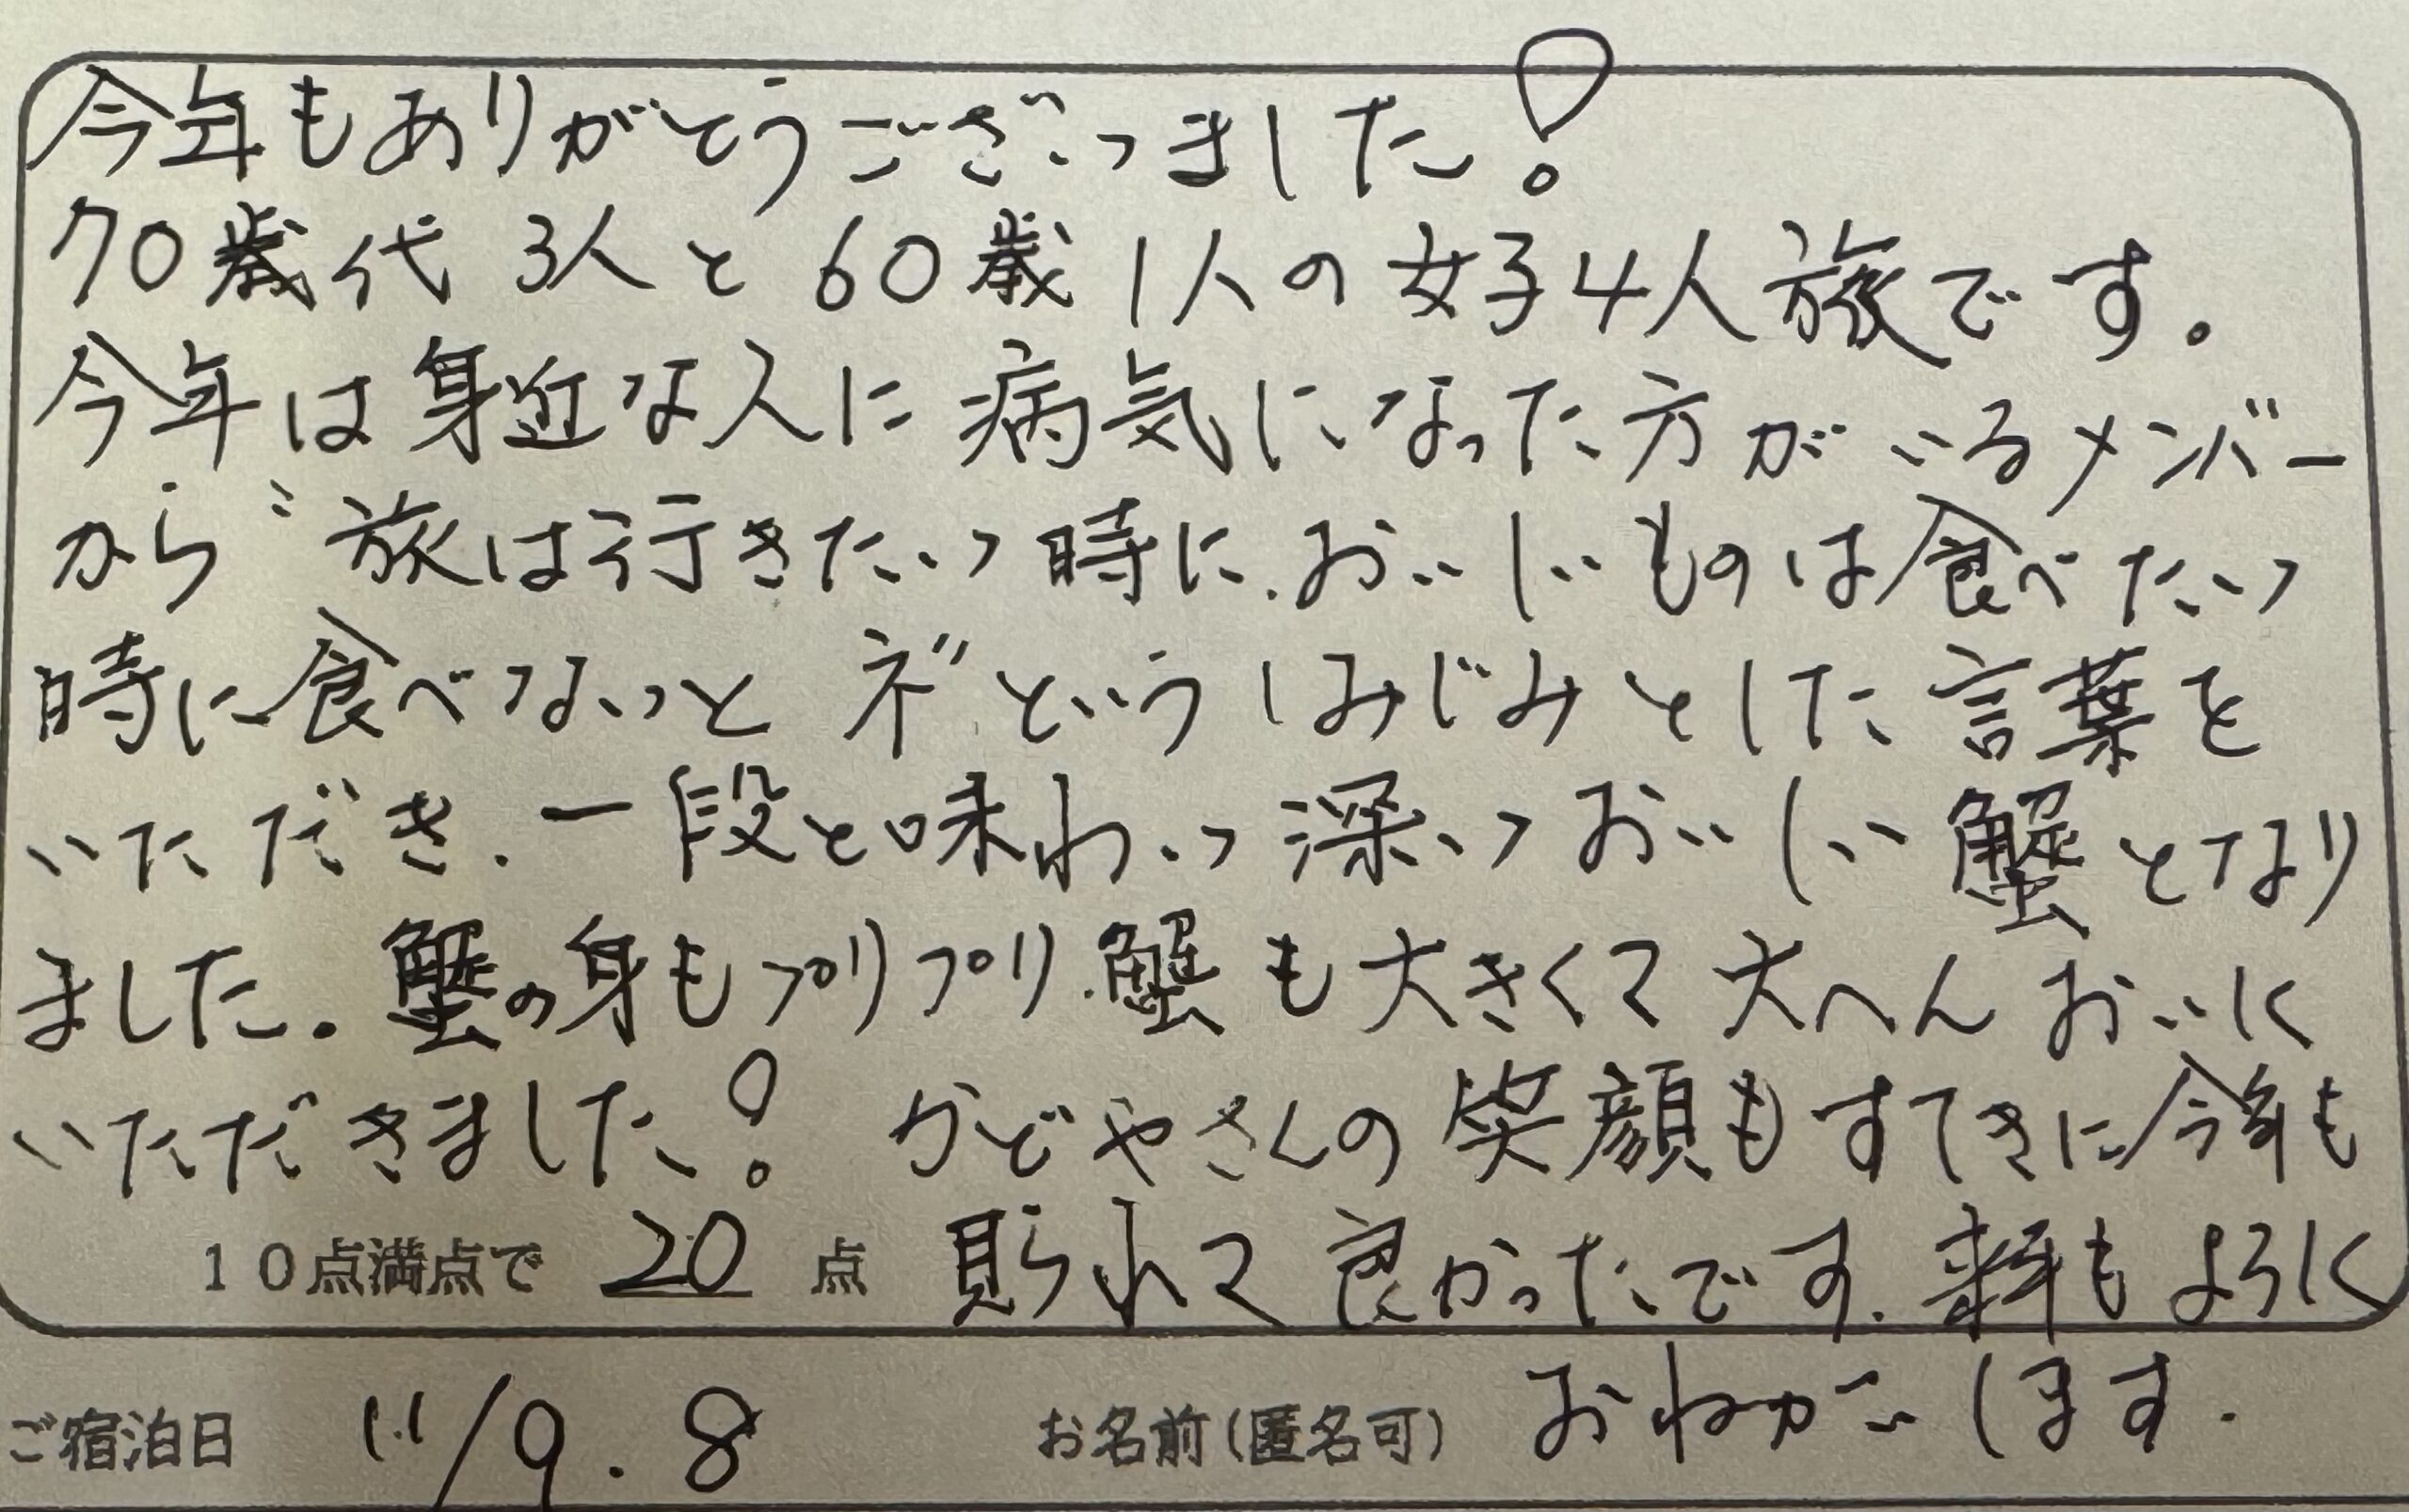 今年もありがとうございました!
70歳代 3人と 60歳 1人の女子4人旅です。
今年は身近な人に病気になった方がいるメンバー
から〝旅は行きたい時に.おいしいものは食べたい
時に食べないとネ〟というしみじみとした言葉を
いただき.一段と味わい深いおいしい蟹となり
ました。蟹の身もプリプリ.蟹も大きくて大へんおいしく
いただきました! かどやさんの笑顔もすてきに今年も
10点満点で 20 点 見られて良かったです.来年もよろしく
おねがいします.
ご宿泊日 11/9.8 お名前(匿名可)